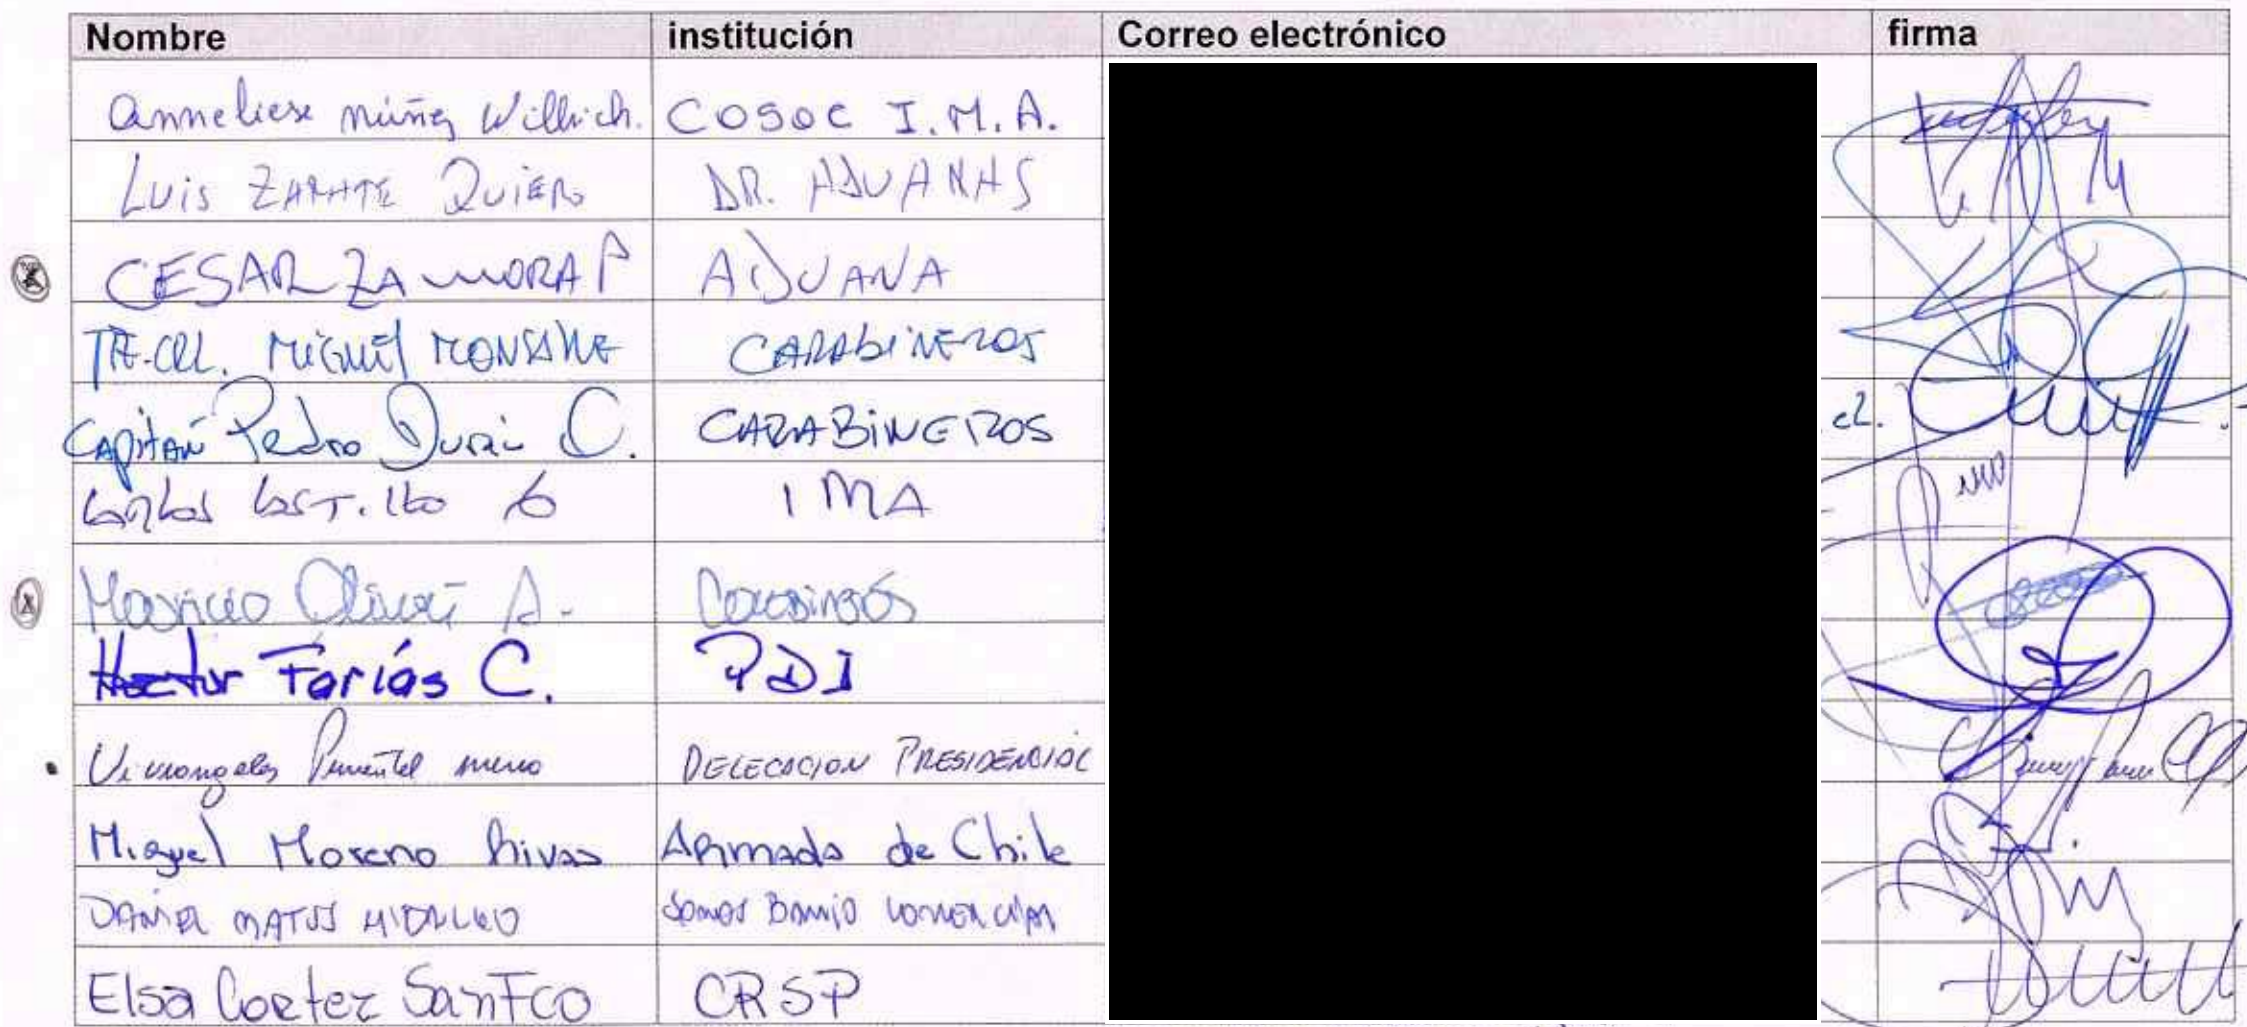 Nombre institución Correo electrónico firma
Anneliese Núñez Willich. COSOC I.M.A.
Luis ZARATE QUIERO DR. ADUANAS
CESAR ZAMORA P ADUANA
TTE.CRL. Miguel MONSALVE CARABINEROS
Capitán Pedro Durán C. CARABINEROS
Carlos Castillo G IMA
Mauricio A. Carabineros
Hector Farías C. PDI
Pimentel DELEGACION PRESIDENCIAL
Miguel Moreno Rivas Armada de Chile
DANIEL MATUS HIDALGO Somos Barrio COMERCIAL
Elsa Cortez SanFco CRSP